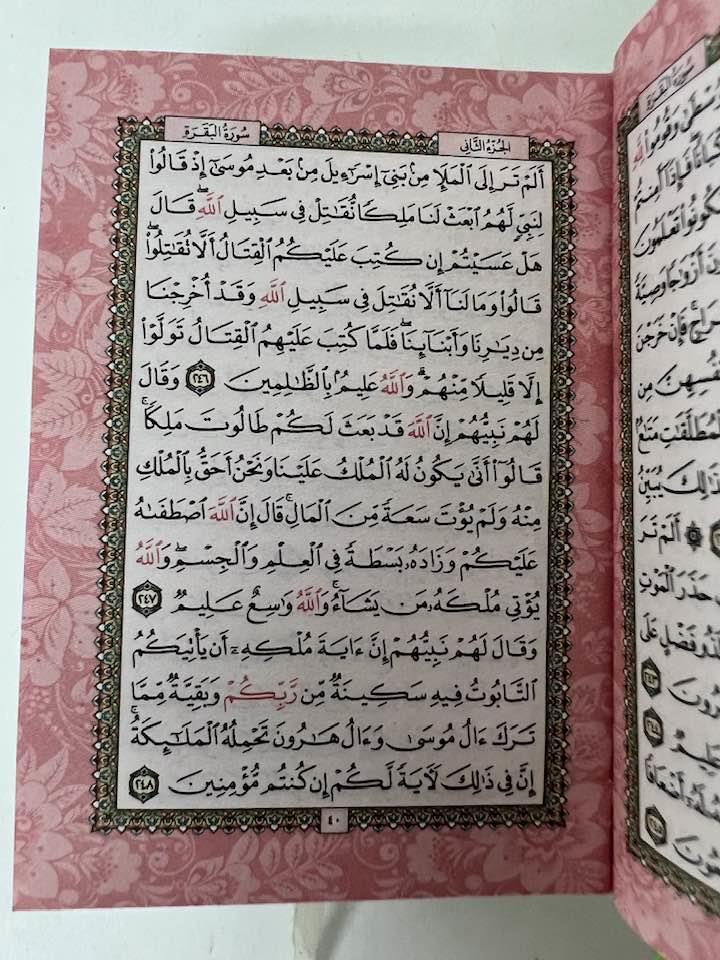 سُورَةُ البَقَرَةِ
الجُزءُ الثَّانِي
أَلَمْ تَرَ إِلَى ٱلْمَلَإِ مِنۢ بَنِىٓ إِسْرَٰٓءِيلَ مِنۢ بَعْدِ مُوسَىٰٓ إِذْ قَالُوا۟
لِنَبِىٍّ لَّهُمُ ٱبْعَثْ لَنَا مَلِكًا نُّقَٰتِلْ فِى سَبِيلِ ٱللَّهِۖ قَالَ
هَلْ عَسَيْتُمْ إِن كُتِبَ عَلَيْكُمُ ٱلْقِتَالُ أَلَّا تُقَٰتِلُوا۟ۖ
قَالُوا۟ وَمَا لَنَآ أَلَّا نُقَٰتِلَ فِى سَبِيلِ ٱللَّهِ وَقَدْ أُخْرِجْنَا
مِن دِيَٰرِنَا وَأَبْنَآئِنَاۖ فَلَمَّا كُتِبَ عَلَيْهِمُ ٱلْقِتَالُ تَوَلَّوْا۟
إِلَّا قَلِيلًا مِّنْهُمْۗ وَٱللَّهُ عَلِيمٌۢ بِٱلظَّٰلِمِينَ ٢٤٦ وَقَالَ
لَهُمْ نَبِيُّهُمْ إِنَّ ٱللَّهَ قَدْ بَعَثَ لَكُمْ طَالُوتَ مَلِكًاۚ
قَالُوٓا۟ أَنَّىٰ يَكُونُ لَهُ ٱلْمُلْكُ عَلَيْنَا وَنَحْنُ أَحَقُّ بِٱلْمُلْكِ
مِنْهُ وَلَمْ يُؤْتَ سَعَةً مِّنَ ٱلْمَالِۚ قَالَ إِنَّ ٱللَّهَ ٱصْطَفَىٰهُ
عَلَيْكُمْ وَزَادَهُۥ بَسْطَةً فِى ٱلْعِلْمِ وَٱلْجِسْمِۖ وَٱللَّهُ
يُؤْتِى مُلْكَهُۥ مَن يَشَآءُۚ وَٱللَّهُ وَٰسِعٌ عَلِيمٌ ٢٤٧
وَقَالَ لَهُمْ نَبِيُّهُمْ إِنَّ ءَايَةَ مُلْكِهِۦٓ أَن يَأْتِيَكُمُ
ٱلتَّابُوتُ فِيهِ سَكِينَةٌ مِّن رَّبِّكُمْ وَبَقِيَّةٌ مِّمَّا
تَرَكَ ءَالُ مُوسَىٰ وَءَالُ هَٰرُونَ تَحْمِلُهُ ٱلْمَلَٰٓئِكَةُۚ
إِنَّ فِى ذَٰلِكَ لَءَايَةً لَّكُمْ إِن كُنتُم مُّؤْمِنِينَ ٢٤٨
٤٠